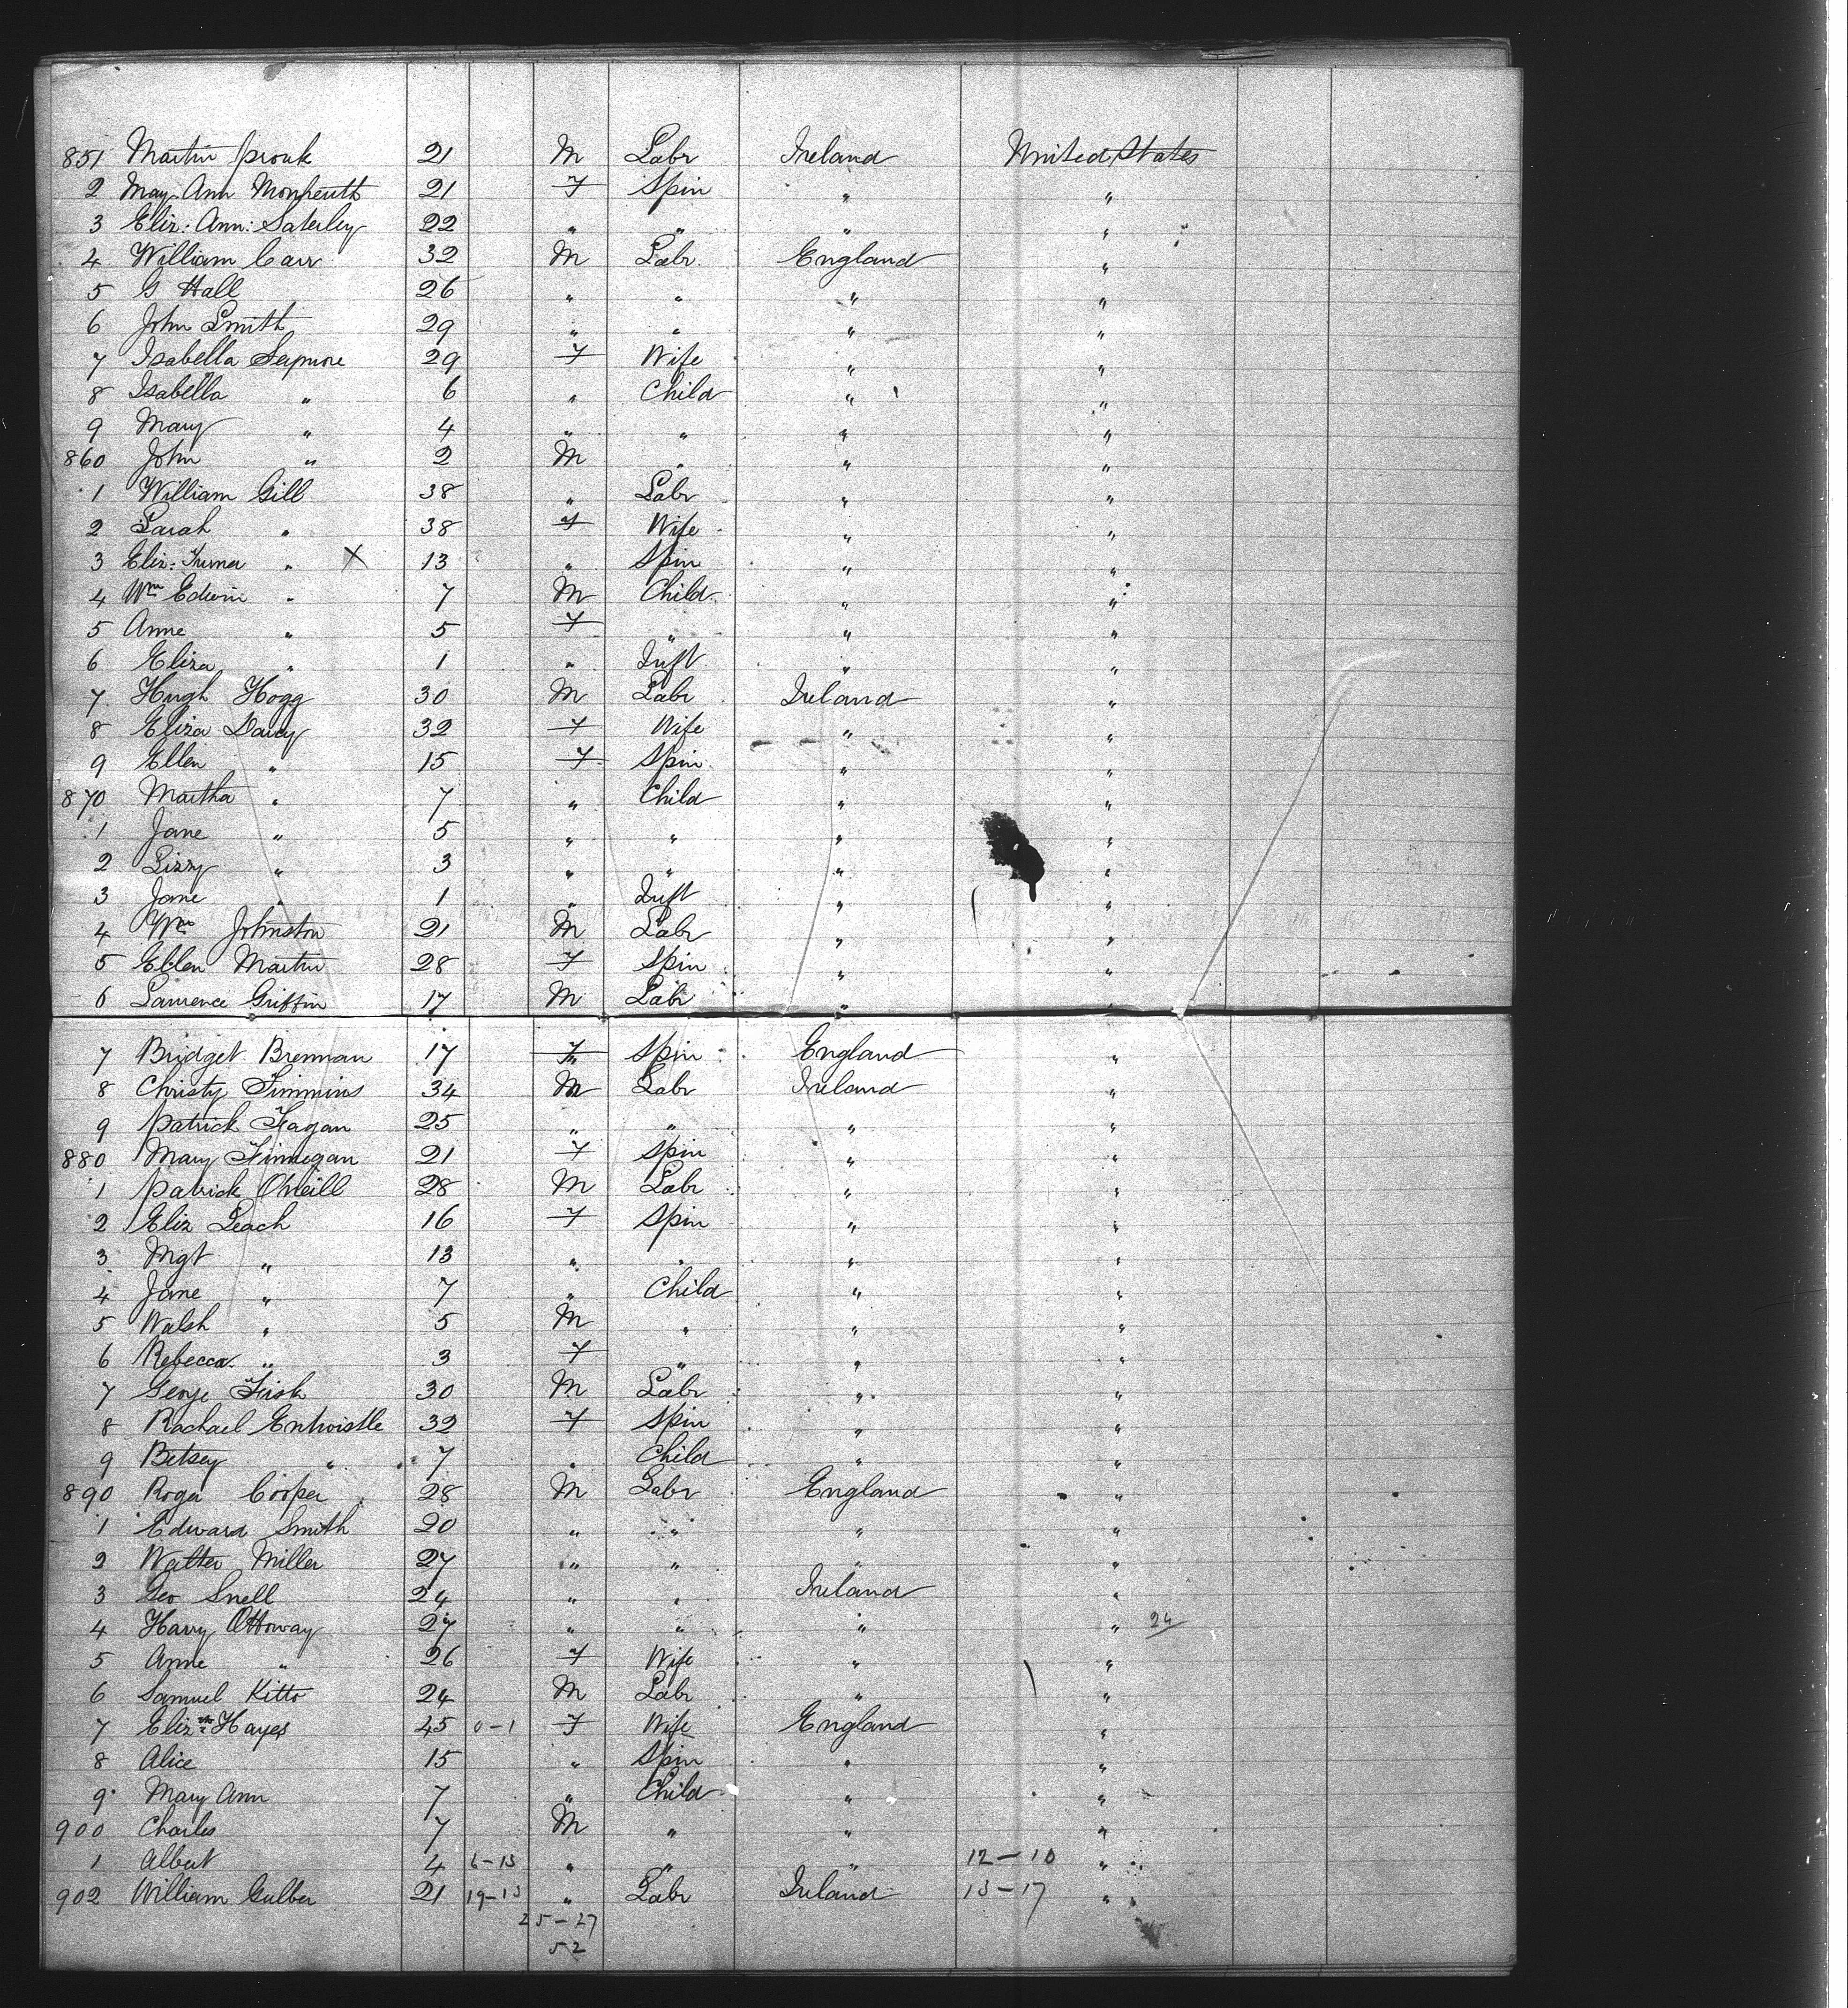 851 Martin Spronk 21 M Labr Ireland United States
2 May Ann Monheuth 21 F Spin " "
3 Eliz: Ann: Saterley 22 " " " "
4 William Carr 32 M Labr. England "
5 G Hall 26 " " " "
6 John Smith 29 " " " "
7 Isabella Seymore 29 F Wife " "
8 Isabella " 6 " Child " "
9 Mary " 4 " " " "
860 John " 2 M " " "
1 William Gill 38 " Labr " "
2 Sarah " 38 F Wife " "
3 Eliz: Turner " X 13 " Spin " "
4 Wm Edwin " 7 M Child " "
5 Anne " 5 F " " "
6 Eliza " 1 " Inft " "
7 Hugh Hogg 30 M Labr Ireland "
8 Eliza Darcy 32 F Wife " "
9 Ellen " 15 F Spin " "
870 Martha " 7 " Child " "
1 Jane " 5 " " " "
2 Lizzy " 3 " " " "
3 Jane " 1 " Inft " "
4 Wm Johnston 21 M Labr " "
5 Ellen Martin 28 F Spin " "
6 Laurence Griffin 17 M Labr " "
7 Bridget Brennan 17 F Spin England "
8 Christy Simmins 34 M Labr Ireland "
9 Patrick Fagan 25 " " " "
880 Mary Finnegan 21 F Spin " "
1 Patrick O'Neill 28 M Labr " "
2 Eliz Leach 16 F Spin " "
3 Mgt " 13 " " " "
4 Jane " 7 " Child " "
5 Walsh " 5 M " " "
6 Rebecca " 3 F " " "
7 George Fisk 30 M Labr " "
8 Rachael Entwistle 32 F Spin " "
9 Betsey " 7 " Child " "
890 Roger Cooper 28 M Labr England "
1 Edward Smith 20 " " " "
2 Walter Miller 27 " " " "
3 Geo Snell 24 " " Ireland "
4 Harry Ottoway 27 " " " " 24
5 Anne " 26 F Wife " "
6 Samuel Kitto 24 M Labr " "
7 Elizth Hayes 45 0-1 F Wife England "
8 Alice 15 " Spin " "
9 Mary Ann 7 " Child " "
900 Charles 7 M " " "
1 Albert 4 6-13 " " " 12-10 "
902 William Gulber 21 19-13 " Labr Ireland 13-17 "
25-27
52